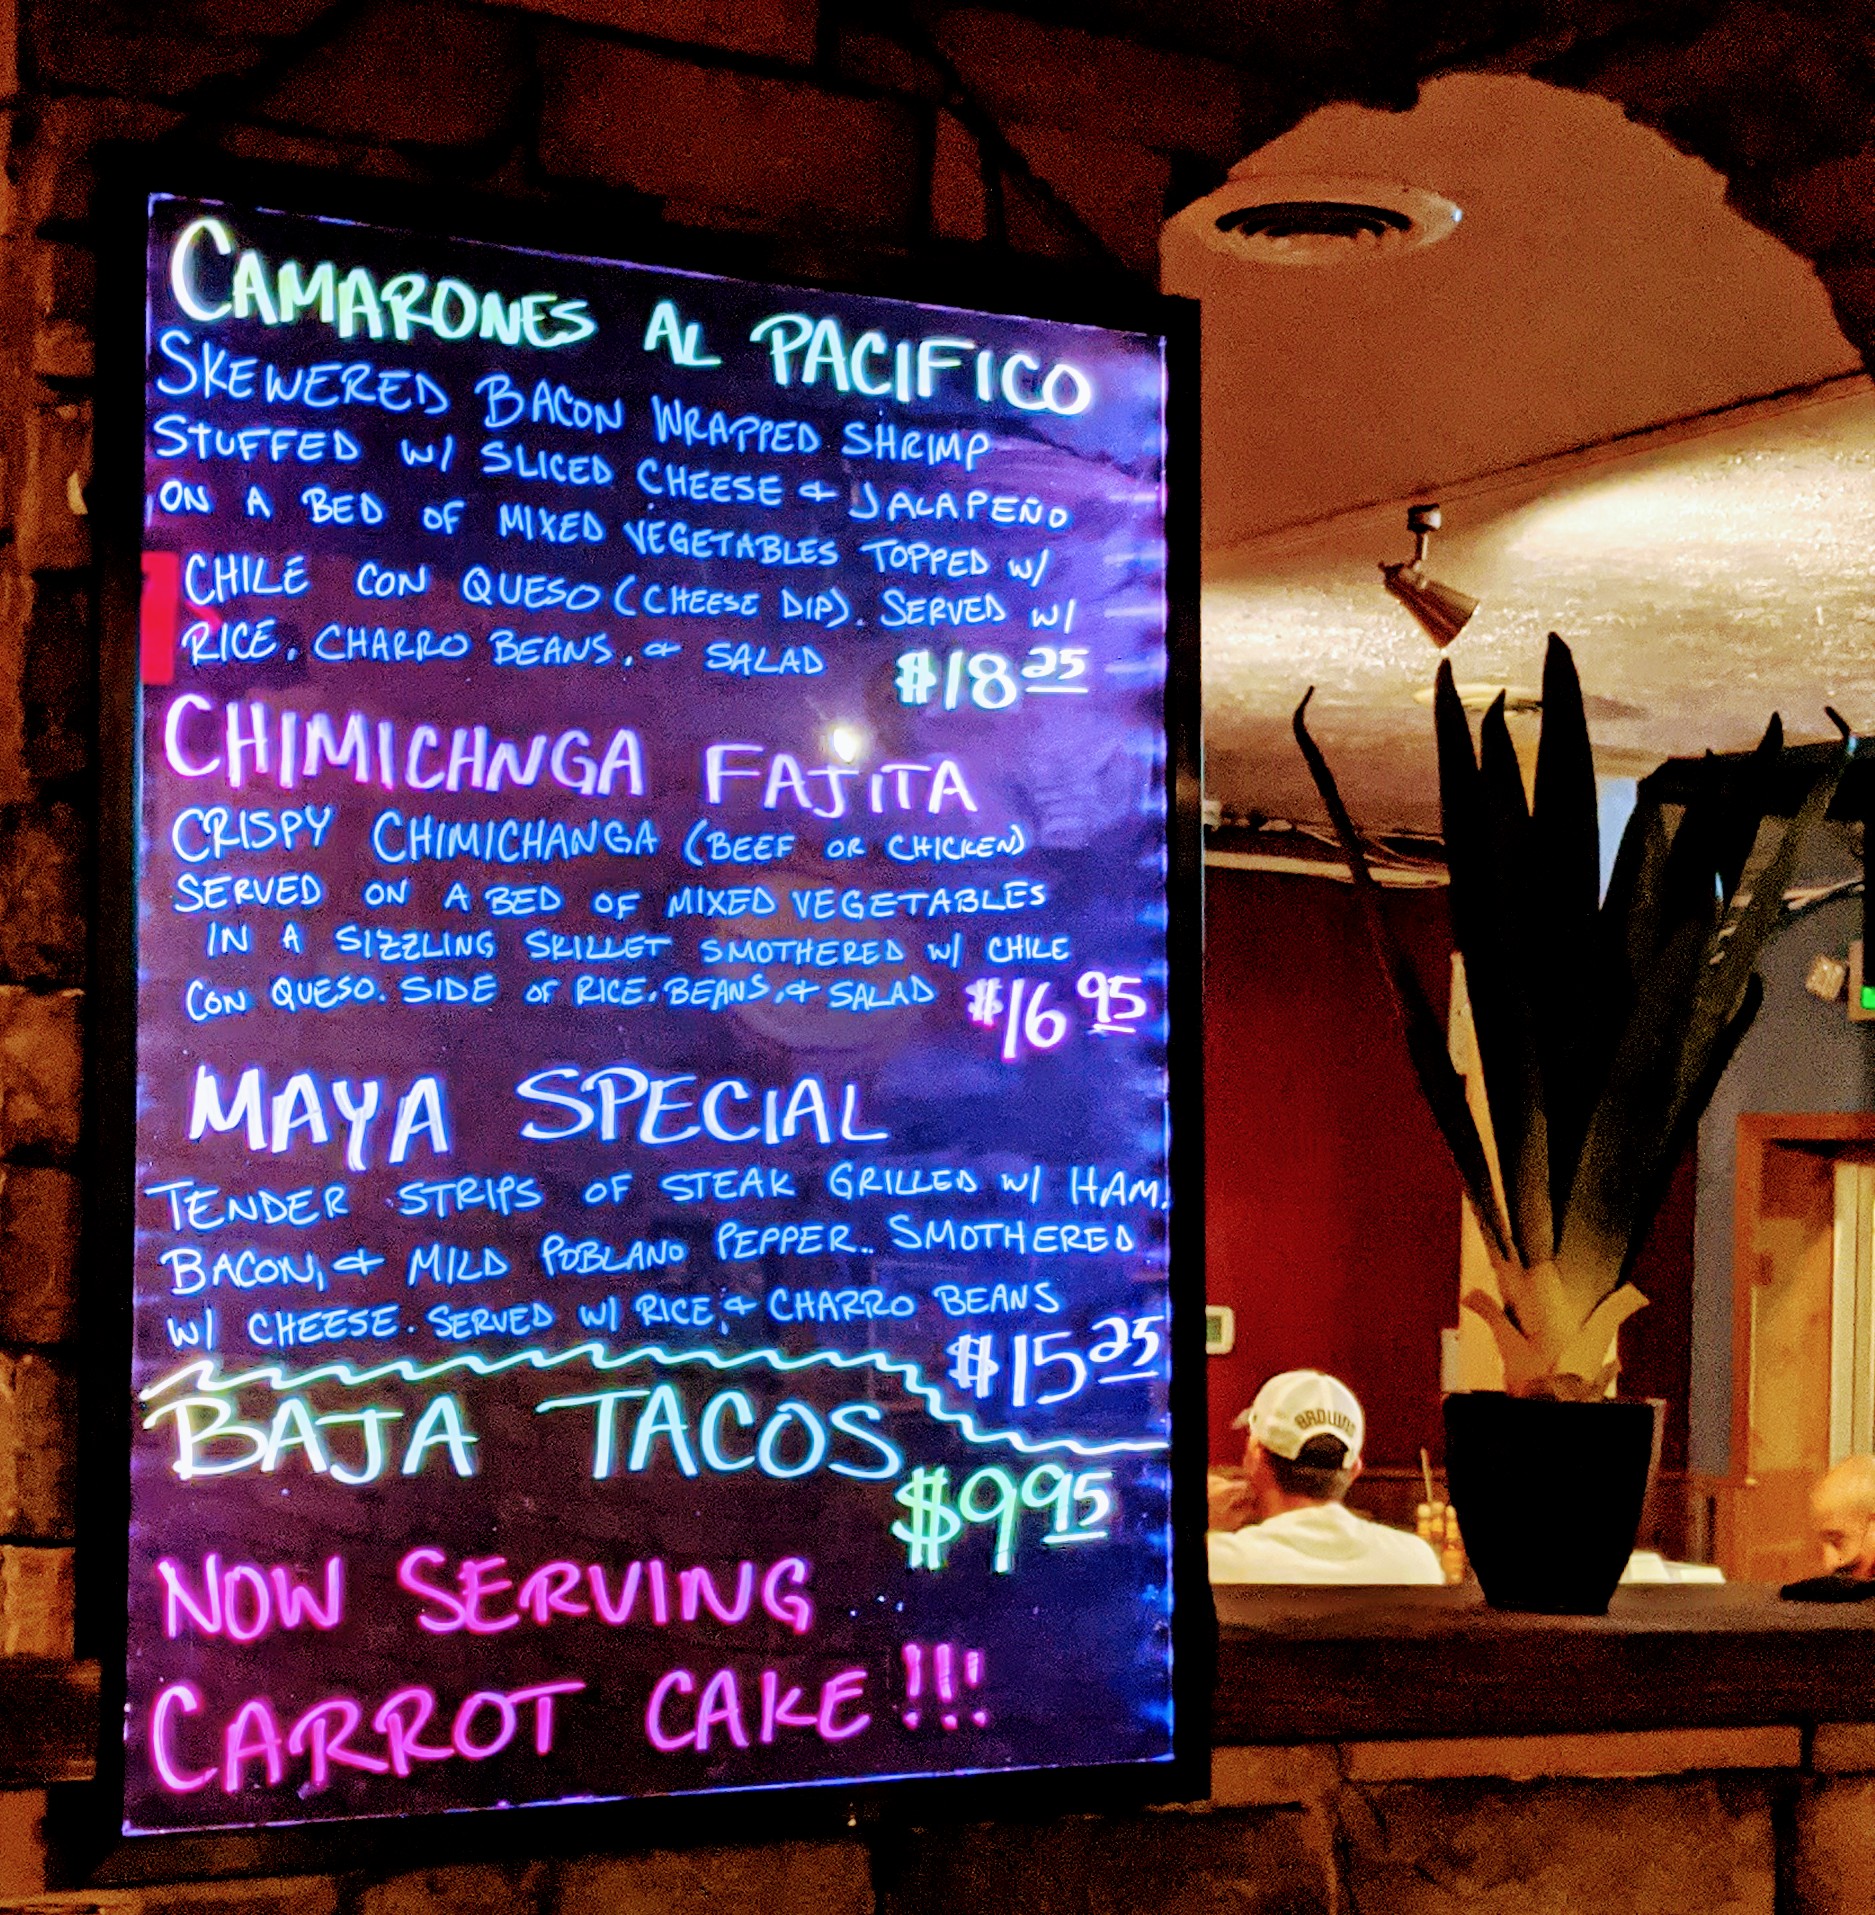 CAMARONES AL PACIFICO
SKEWERED BACON WRAPPED SHRIMP
STUFFED W/ SLICED CHEESE & JALAPEÑO
ON A BED OF MIXED VEGETABLES TOPPED W/
CHILE CON QUESO (CHEESE DIP). SERVED W/
RICE, CHARRO BEANS, & SALAD $18 25
CHIMICHNGA FAJITA
CRISPY CHIMICHANGA (BEEF OR CHICKEN)
SERVED ON A BED OF MIXED VEGETABLES
IN A SIZZLING SKILLET SMOTHERED W/ CHILE
CON QUESO. SIDE OF RICE, BEANS, & SALAD $16 95
MAYA SPECIAL
TENDER STRIPS OF STEAK GRILLED W/ HAM,
BACON, & MILD POBLANO PEPPER.. SMOTHERED
W/ CHEESE. SERVED W/ RICE, & CHARRO BEANS
$15 25
BAJA TACOS
$9 95
NOW SERVING
CARROT CAKE!!!